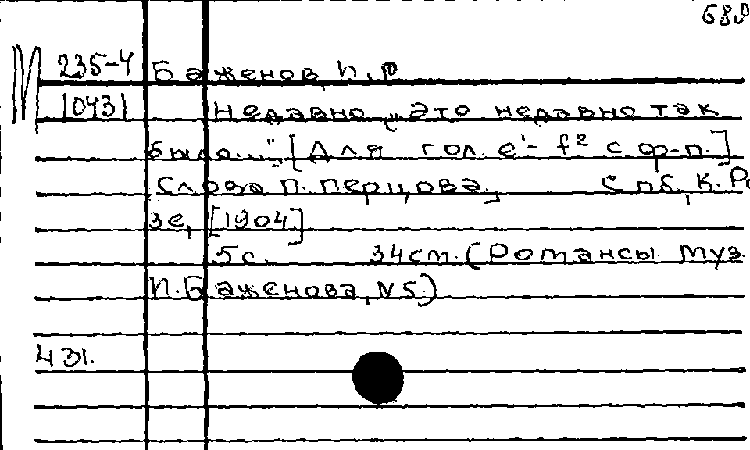 М 235-4 Баженов, П.Р
10431 Недавно „Это недавно так
было..." [Для гол. e¹- f² с ф-п.]
Слова П. Перцова, Спб, К. Рі
зе, [1904]
5 с. 34 см. (Романсы муз.
П. Баженова, N5.)
431.